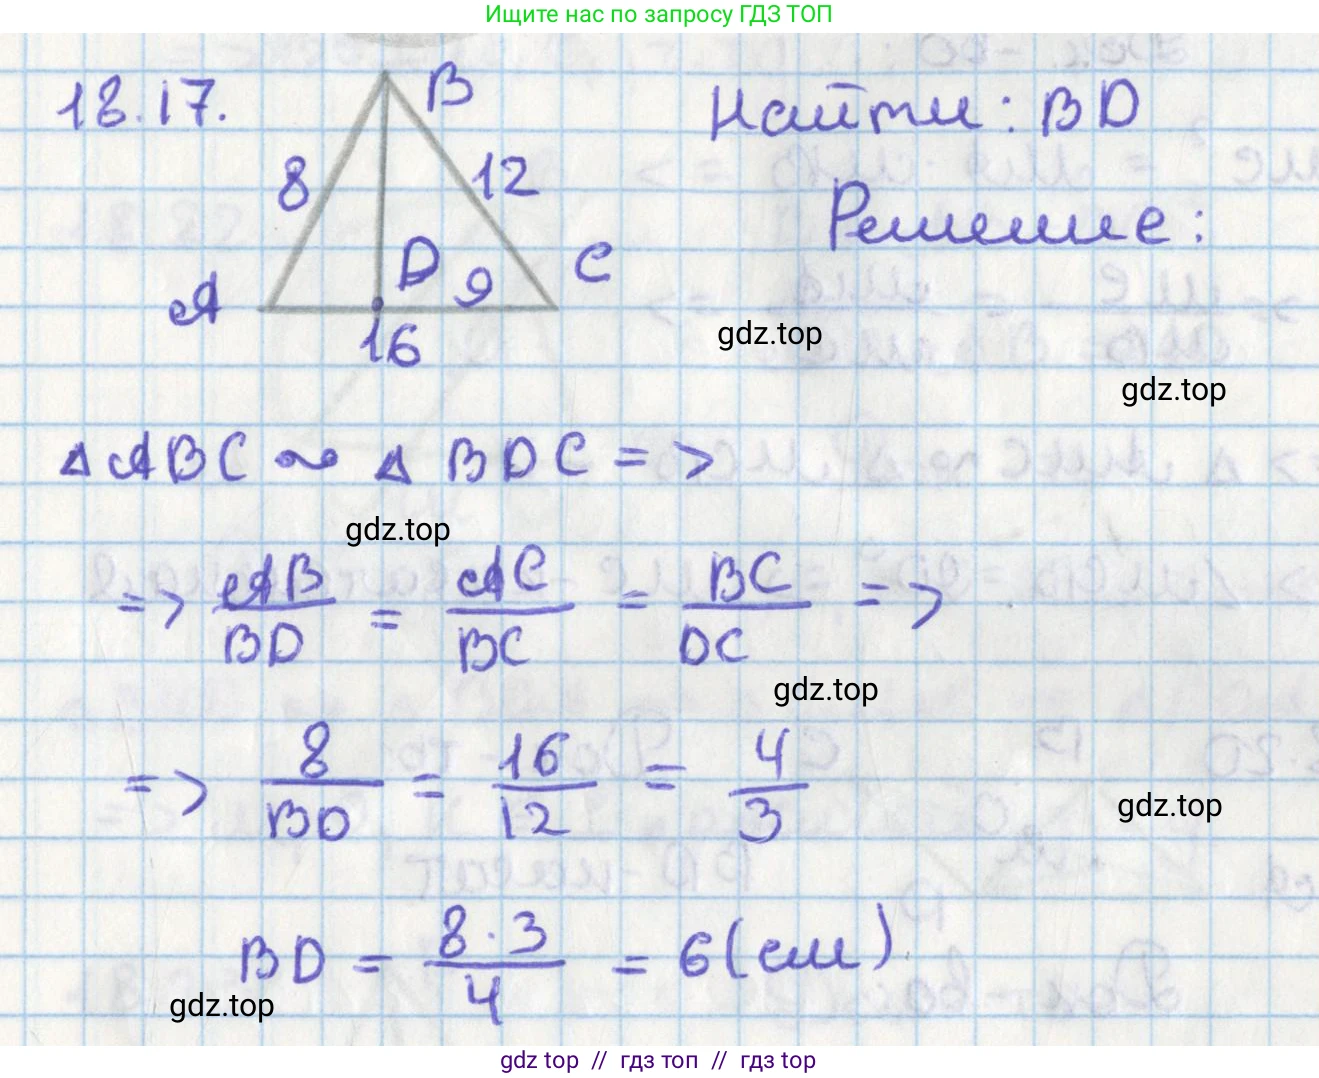 Ищите нас по запросу ГДЗ ТОП
18.17.
B
Найти: BD
8
12
Решение:
D
9
C
A
16
gdz.top
gdz.top
△ ABC ~ △ BDC =>
gdz.top
=> AB/BD = AC/BC = BC/DC =>
gdz.top
=> 8/BD = 16/12 = 4/3
gdz.top
BD = 8·3/4 = 6 (см)
gdz.top
gdz top // гдз топ // gdz top